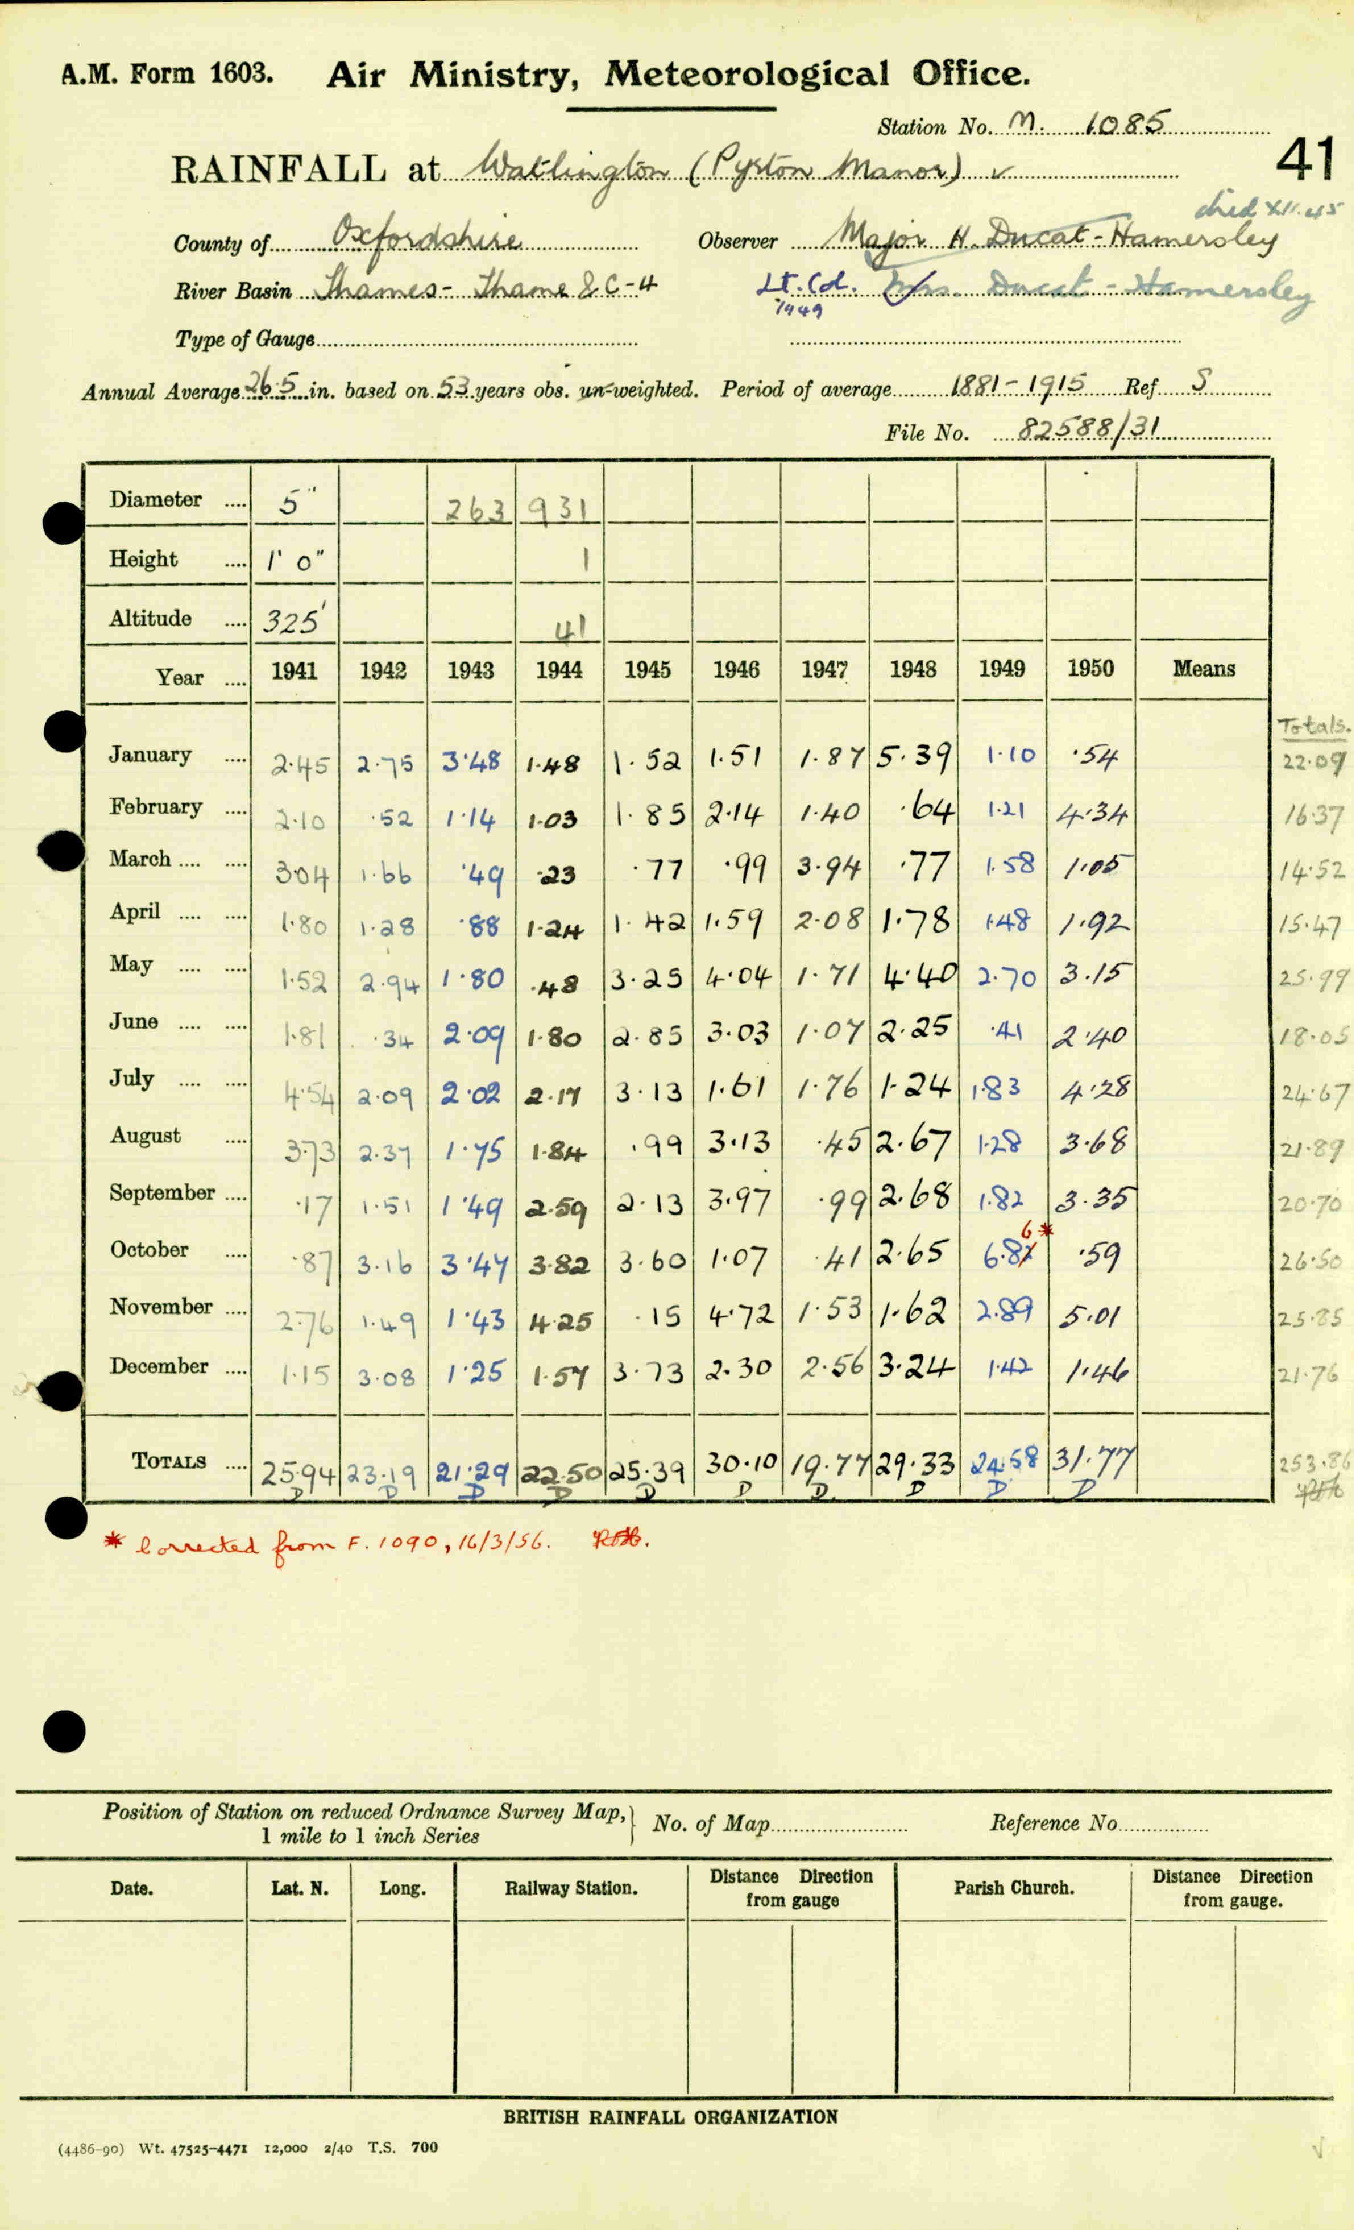 A.M. Form 1603. Air Ministry, Meteorological Office.
Station No. M. 1085
41
RAINFALL at Watlington (Pyrton Manor) ✓
died XII.45
County of Oxfordshire Observer Major H. Ducat-Hamersley
River Basin Thames - Thame & C-4 Lt. Col. Mrs. Ducat-Hamersley
1949
Type of Gauge
Annual Average 26.5 in. based on 53 years obs. un-weighted. Period of average 1881-1915 Ref S
File No. 82588/31
Diameter .... 5" 263 931
Height .... 1' 0" 1
Altitude .... 325' 41
Year .... 1941 1942 1943 1944 1945 1946 1947 1948 1949 1950 Means
Totals.
January .... 2.45 2.75 3.48 1.48 1.52 1.51 1.87 5.39 1.10 .54 22.09
February .... 2.10 .52 1.14 1.03 1.85 2.14 1.40 .64 1.21 4.34 16.37
March .... .... 3.04 1.66 .49 .23 .77 .99 3.94 .77 1.58 1.05 14.52
April .... .... 1.80 1.28 .88 1.24 1.42 1.59 2.08 1.78 1.48 1.92 15.47
May .... .... 1.52 2.94 1.80 .48 3.25 4.04 1.71 4.40 2.70 3.15 25.99
June .... .... 1.81 .34 2.09 1.80 2.85 3.03 1.07 2.25 .41 2.40 18.05
July .... .... 4.54 2.09 2.02 2.17 3.13 1.61 1.76 1.24 1.83 4.28 24.67
August .... 3.73 2.37 1.75 1.84 .99 3.13 .45 2.67 1.28 3.68 21.89
September .... .17 1.51 1.49 2.59 2.13 3.97 .99 2.68 1.82 3.35 20.70
6*
October .... .87 3.16 3.47 3.82 3.60 1.07 .41 2.65 6.82 .59 26.50
November .... 2.76 1.49 1.43 4.25 .15 4.72 1.53 1.62 2.89 5.01 25.85
December .... 1.15 3.08 1.25 1.57 3.73 2.30 2.56 3.24 1.42 1.46 21.76
TOTALS .... 25.94 23.19 21.29 22.50 25.39 30.10 19.77 29.33 24.58 31.77 253.86
D D D D D D D D D D
* Corrected from F. 1090, 16/3/56.
Position of Station on reduced Ordnance Survey Map, 1 mile to 1 inch Series No. of Map Reference No
Date. Lat. N. Long. Railway Station. Distance Direction from gauge Parish Church. Distance Direction from gauge.
BRITISH RAINFALL ORGANIZATION
(4486-90) Wt. 47525-4471 12,000 2/40 T.S. 700